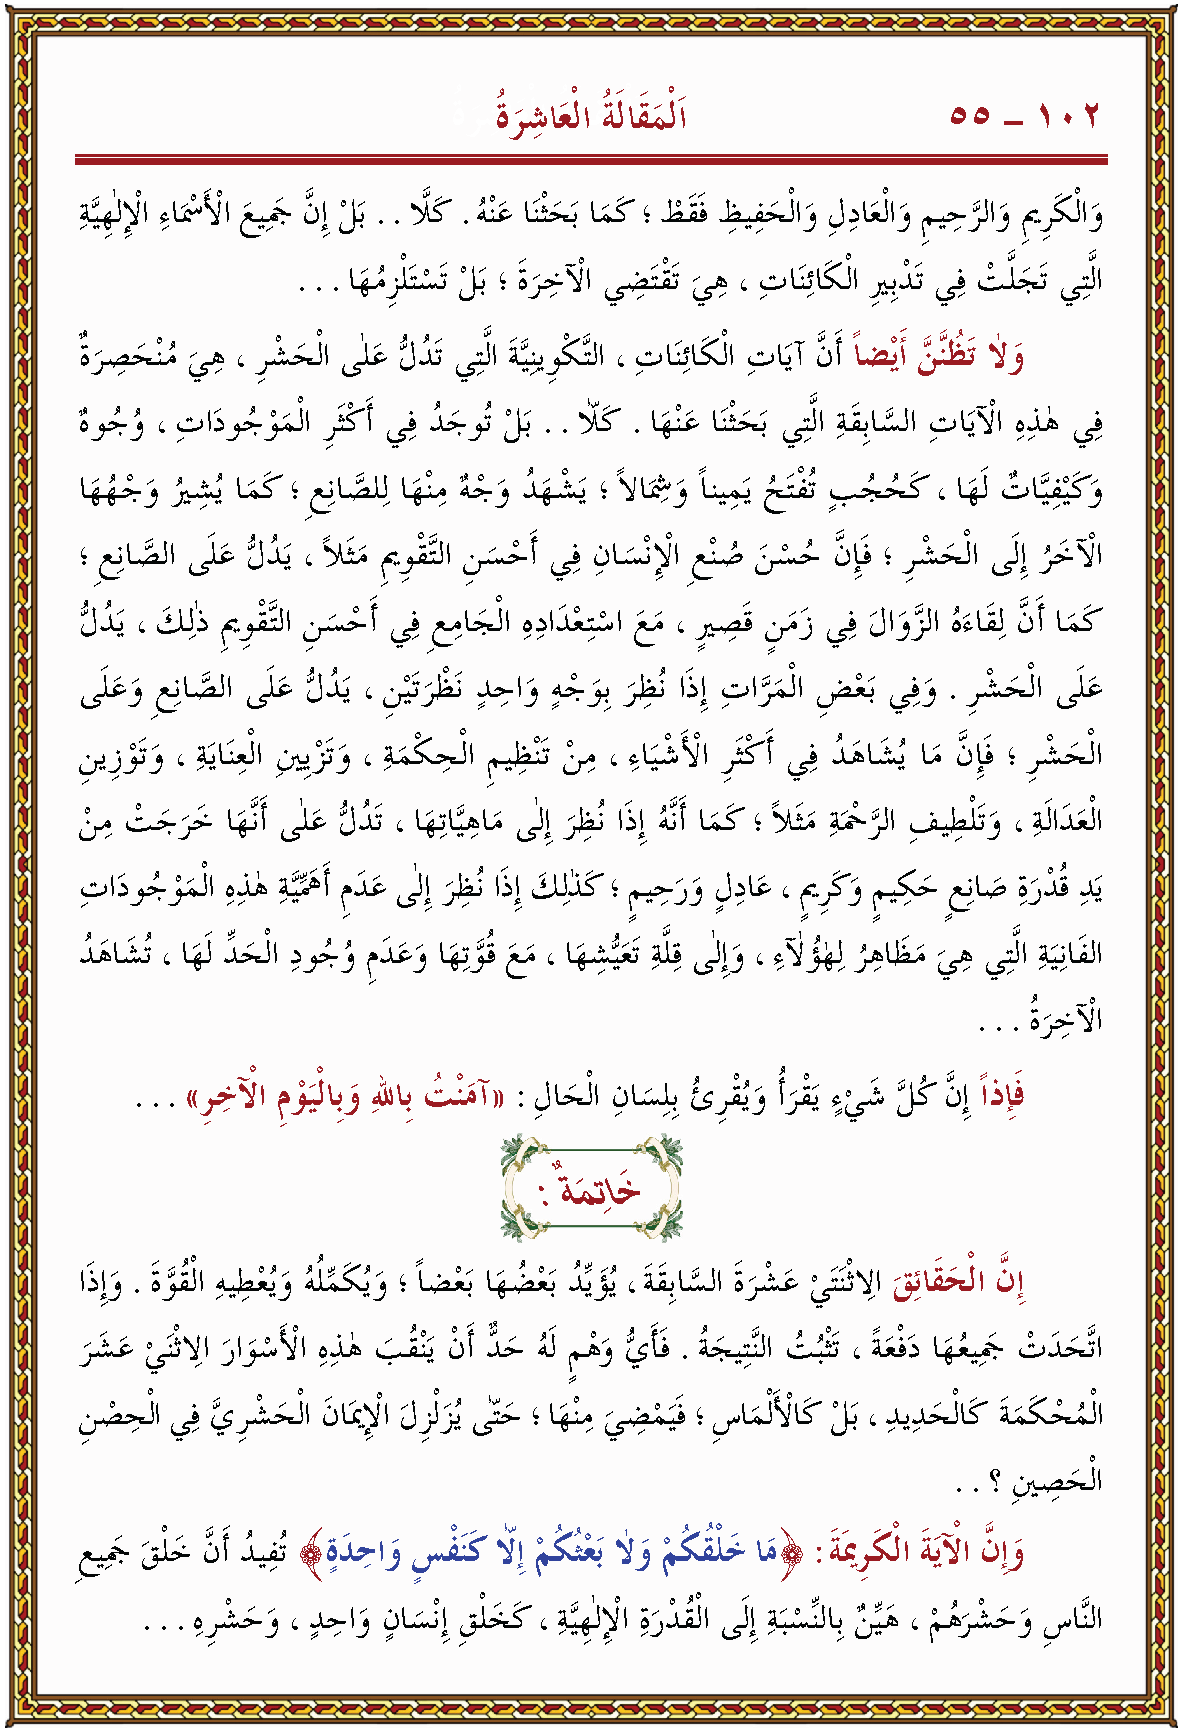 ١٠٢ ـ ٥٥ اَلْمَقَالَةُ الْعَاشِرَةُ
وَالْكَرِيمِ وَالرَّحِيمِ وَالْعَادِلِ وَالْحَفِيظِ فَقَطْ ؛ كَمَا بَحَثْنَا عَنْهُ . كَلَّا . . بَلْ إِنَّ جَمِيعَ الْأَسْمَاءِ الْإِلٰهِيَّةِ
الَّتِي تَجَلَّتْ فِي تَدْبِيرِ الْكَائِنَاتِ ، هِيَ تَقْتَضِي الْآخِرَةَ ؛ بَلْ تَسْتَلْزِمُهَا . . .
وَلَا تَظُنَّنَّ أَيْضاً أَنَّ آيَاتِ الْكَائِنَاتِ ، التَّكْوِينِيَّةَ الَّتِي تَدُلُّ عَلٰى الْحَشْرِ ، هِيَ مُنْحَصِرَةٌ
فِي هٰذِهِ الْآيَاتِ السَّابِقَةِ الَّتِي بَحَثْنَا عَنْهَا . كَلّٰا . . بَلْ تُوجَدُ فِي أَكْثَرِ الْمَوْجُودَاتِ ، وُجُوهٌ
وَكَيْفِيَّاتٌ لَهَا ، كَحُجُبٍ تُفْتَحُ يَمِيناً وَشِمَالاً ؛ يَشْهَدُ وَجْهٌ مِنْهَا لِلصَّانِعِ ؛ كَمَا يُشِيرُ وَجْهُهَا
الْآخَرُ إِلَى الْحَشْرِ ؛ فَإِنَّ حُسْنَ صُنْعِ الْإِنْسَانِ فِي أَحْسَنِ التَّقْوِيمِ مَثَلاً ، يَدُلُّ عَلَى الصَّانِعِ ؛
كَمَا أَنَّ لِقَاءَهُ الزَّوَالَ فِي زَمَنٍ قَصِيرٍ ، مَعَ اسْتِعْدَادِهِ الْجَامِعِ فِي أَحْسَنِ التَّقْوِيمِ ذٰلِكَ ، يَدُلُّ
عَلَى الْحَشْرِ . وَفِي بَعْضِ الْمَرَّاتِ إِذَا نُظِرَ بِوَجْهٍ وَاحِدٍ نَظْرَتَيْنِ ، يَدُلُّ عَلَى الصَّانِعِ وَعَلَى
الْحَشْرِ ؛ فَإِنَّ مَا يُشَاهَدُ فِي أَكْثَرِ الْأَشْيَاءِ ، مِنْ تَنْظِيمِ الْحِكْمَةِ ، وَتَزْيِينِ الْعِنَايَةِ ، وَتَوْزِينِ
الْعَدَالَةِ ، وَتَلْطِيفِ الرَّحْمَةِ مَثَلاً ؛ كَمَا أَنَّهُ إِذَا نُظِرَ إِلٰى مَاهِيَّاتِهَا ، تَدُلُّ عَلٰى أَنَّهَا خَرَجَتْ مِنْ
يَدِ قُدْرَةِ صَانِعٍ حَكِيمٍ وَكَرِيمٍ ، عَادِلٍ وَرَحِيمٍ ؛ كَذٰلِكَ إِذَا نُظِرَ إِلٰى عَدَمِ أَهَمِّيَّةِ هٰذِهِ الْمَوْجُودَاتِ
الْفَانِيَةِ الَّتِي هِيَ مَظَاهِرُ لِهٰؤُلَآءِ ، وَإِلٰى قِلَّةِ تَعَيُّشِهَا ، مَعَ قُوَّتِهَا وَعَدَمِ وُجُودِ الْحَدِّ لَهَا ، تُشَاهَدُ
الْآخِرَةُ . . .
فَإِذاً إِنَّ كُلَّ شَيْءٍ يَقْرَأُ وَيُقْرِئُ بِلِسَانِ الْحَالِ : «آمَنْتُ بِاللهِ وَبِالْيَوْمِ الْآخِرِ» . . .
خَاتِمَةٌ :
إِنَّ الْحَقَائِقَ الِاثْنَتَيْ عَشْرَةَ السَّابِقَةَ ، يُؤَيِّدُ بَعْضُهَا بَعْضاً ؛ وَيُكَمِّلُهُ وَيُعْطِيهِ الْقُوَّةَ . وَإِذَا
اتَّحَدَتْ جَمِيعُهَا دَفْعَةً ، تُثْبَتُ النَّتِيجَةُ . فَأَيُّ وَهْمٍ لَهُ حَدٌّ أَنْ يَنْقُبَ هٰذِهِ الْأَسْوَارَ الِاثْنَيْ عَشَرَ
الْمُحْكَمَةَ كَالْحَدِيدِ ، بَلْ كَالْأَلْمَاسِ ؛ فَيَمْضِيَ مِنْهَا ؛ حَتّٰى يُزَلْزِلَ الْإِيمَانَ الْحَشْرِيَّ فِي الْحِصْنِ
الْحَصِينِ ؟ . .
وَإِنَّ الْآيَةَ الْكَرِيمَةَ : ﴿مَا خَلْقُكُمْ وَلَا بَعْثُكُمْ إِلَّا كَنَفْسٍ وَاحِدَةٍ﴾ تُفِيدُ أَنَّ خَلْقَ جَمِيعِ
النَّاسِ وَحَشْرَهُمْ ، هَيِّنٌ بِالنِّسْبَةِ إِلَى الْقُدْرَةِ الْإِلٰهِيَّةِ ، كَخَلْقِ إِنْسَانٍ وَاحِدٍ ، وَحَشْرِهِ . . .